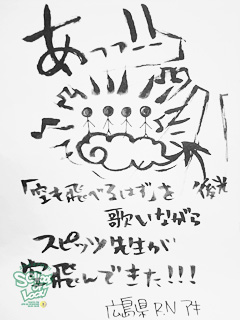 あっ!!
「空も飛べるはず」を
後光
歌いながら
スピッツ先生が
空飛んできた!!!
広島県 R.N アキ
SCHOOL OF LOCK!